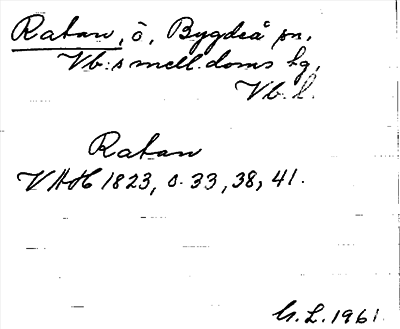 Ratan, ö, Bygdeå sn,
Vb:s mell. doms hg,
Vb. l.
Ratan
VAH 1823, s. 33, 38, 41.
G. L. 1961.